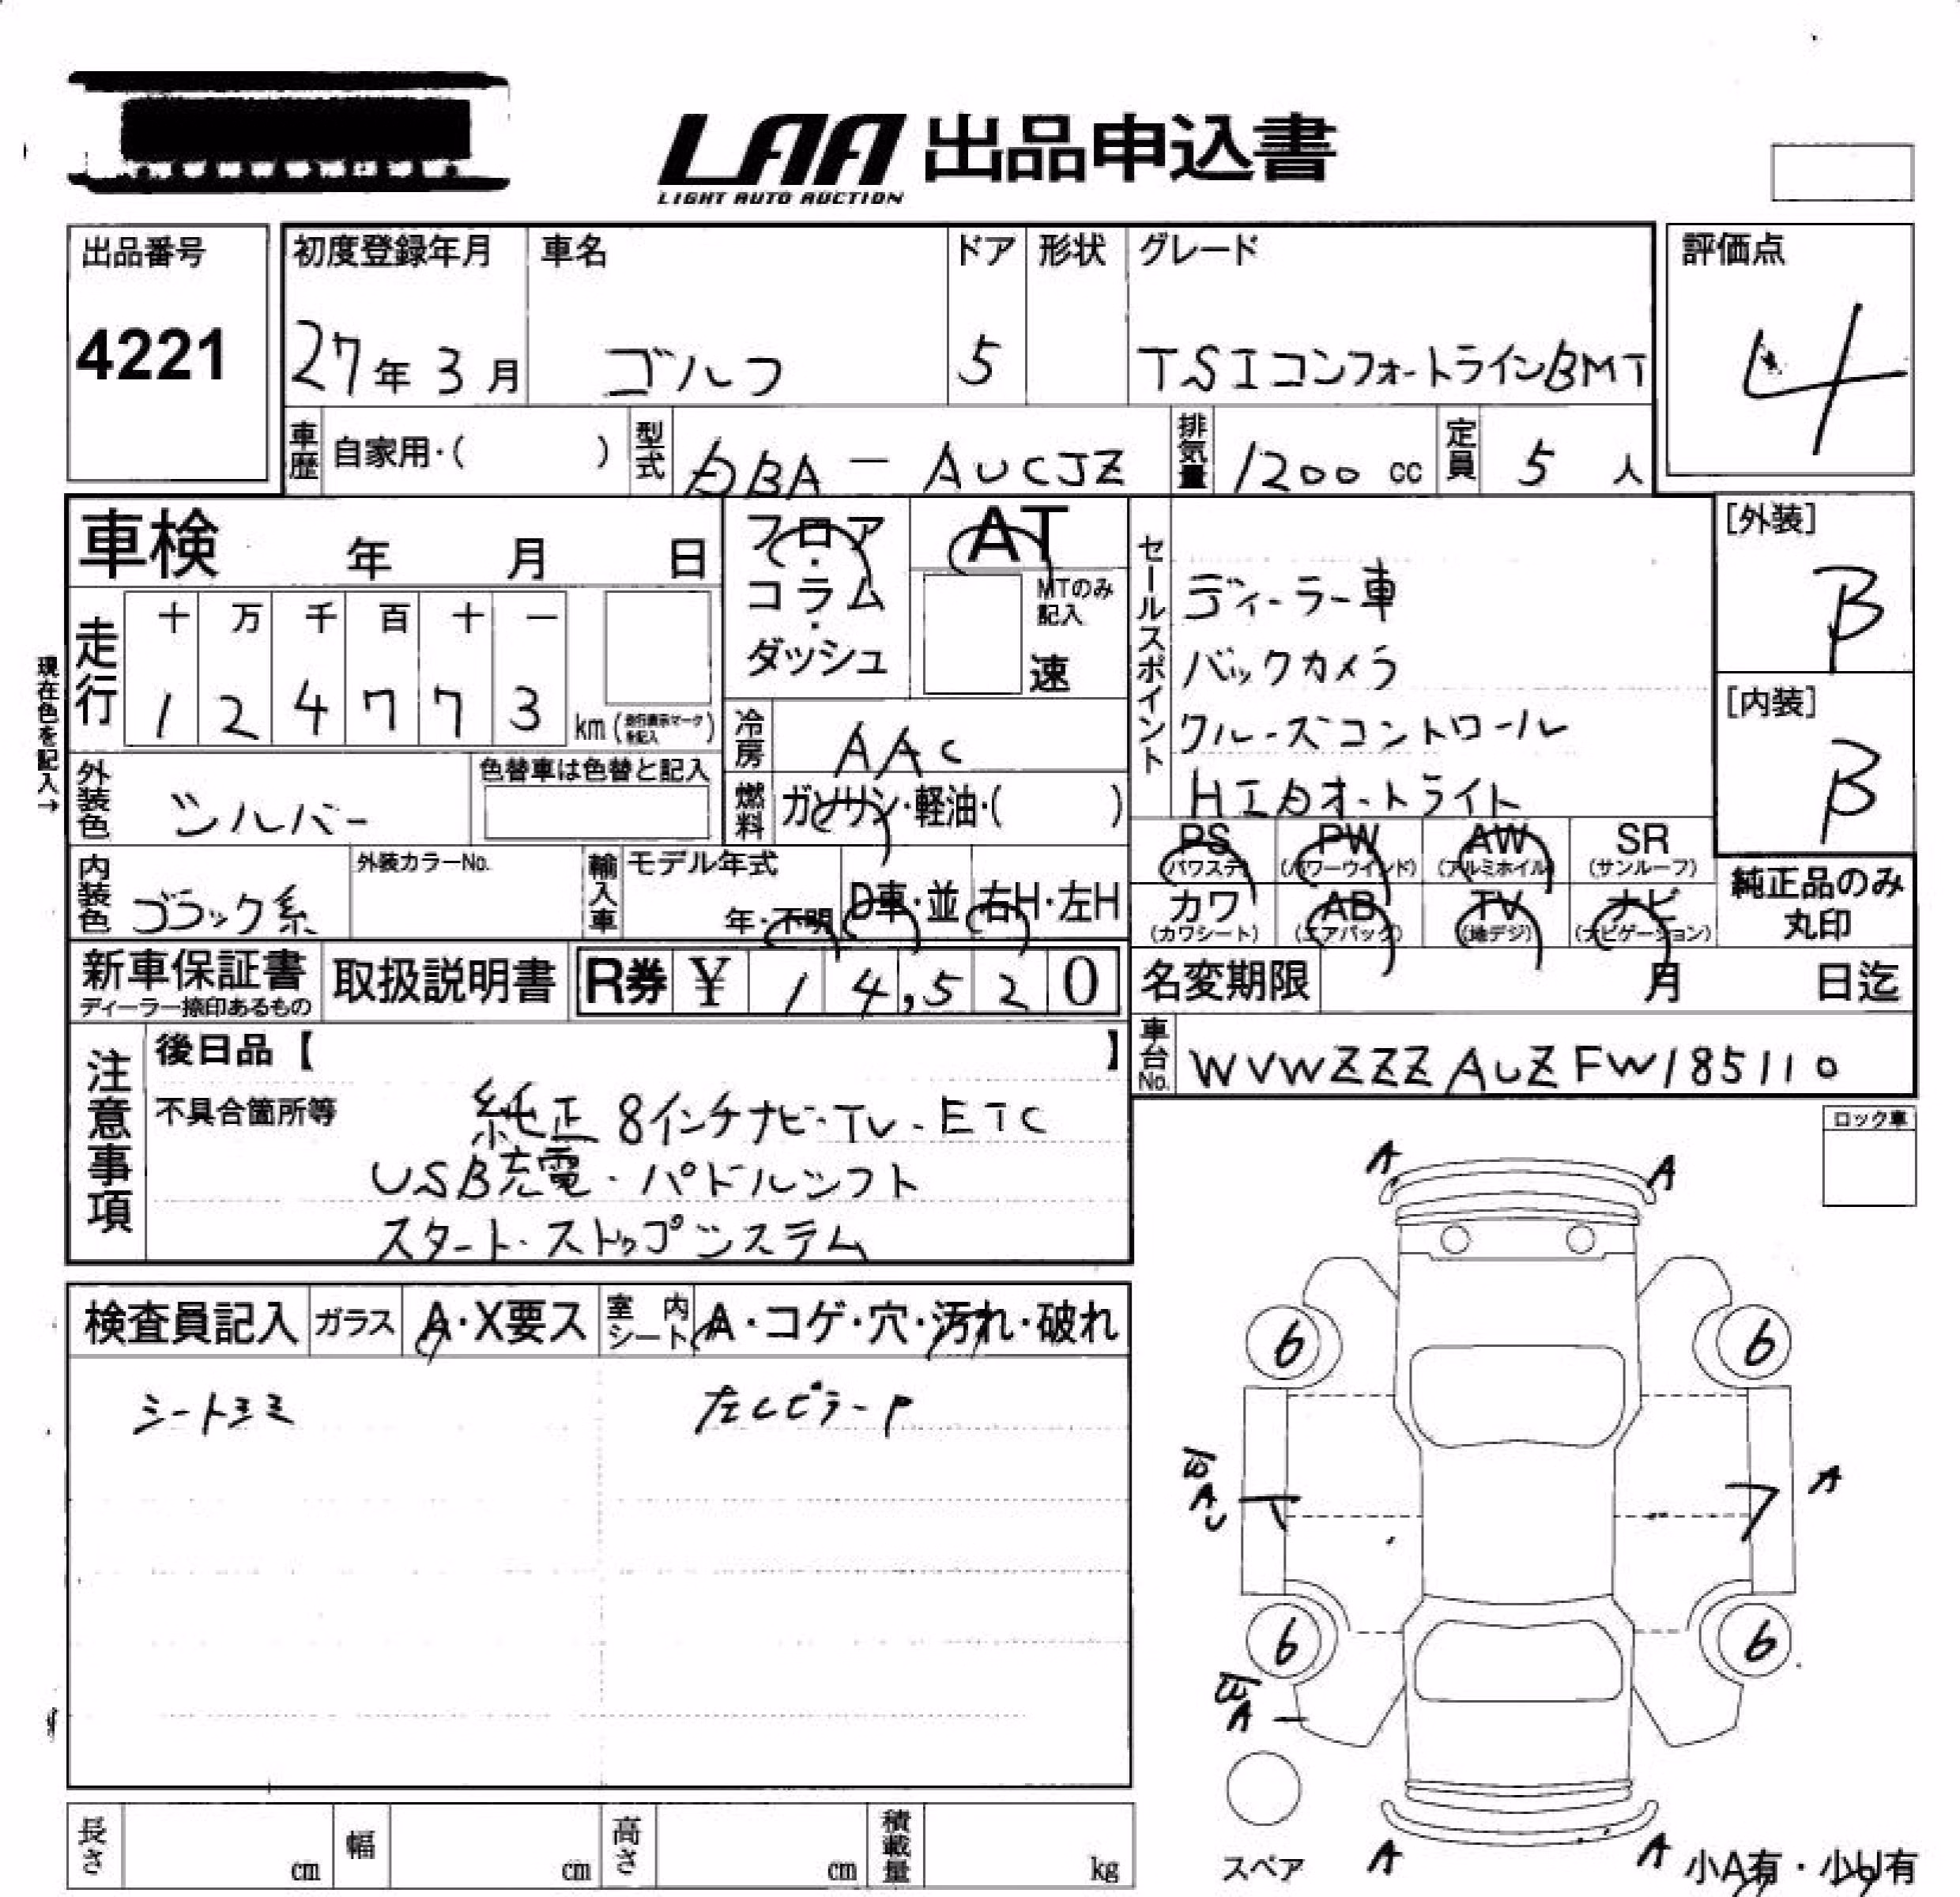 LAA 出品申込書
LIGHT AUTO AUCTION
出品番号
4221
初度登録年月
27年 3月
車名
ゴルフ
ドア
5
形状
グレード
TSIコンフォートラインBMT
評価点
4
車歴 自家用・( )
型式 DBA - AUCJZ
排気量 1200 cc
定員 5 人
車検 年 月 日
フロア・コラム・ダッシュ
AT
MTのみ記入
速
セールスポイント
ディーラー車
バックカメラ
クルーズコントロール
HIDオートライト
[外装]
B
[内装]
B
現在色を記入→
走行
十 万 千 百 十 一
1 2 4 7 7 3
km (走行表示マークを記入)
冷房 AAC
外装色 シルバー
色替車は色替と記入
燃料 ガソリン・軽油・( )
内装色 ブラック系
外装カラーNo.
輸入車
モデル年式
年・不明
D車・並
右H・左H
PS (パワステ)
PW (パワーウインド)
AW (アルミホイル)
SR (サンルーフ)
カワ (カワシート)
AB (エアバック)
TV (地デジ)
ナビ (ナビゲーション)
純正品のみ
丸印
新車保証書
ディーラー捺印あるもの
取扱説明書
R券 ¥ 14,520
名変期限 月 日迄
車台No. WVWZZZAUZFW185110
注意事項
後日品【 】
不具合箇所等
純正 8インチナビ・TV・ETC
USB充電・パドルシフト
スタート・ストップシステム
ロック車
検査員記入
ガラス A・X要ス
室内シート A・コゲ・穴・汚れ・破れ
シートシミ
左CピラーP
A
A
6
6
A
6
6
A
スペア
A
A
小A有・小U有
長さ cm
幅 cm
高さ cm
積載量 kg